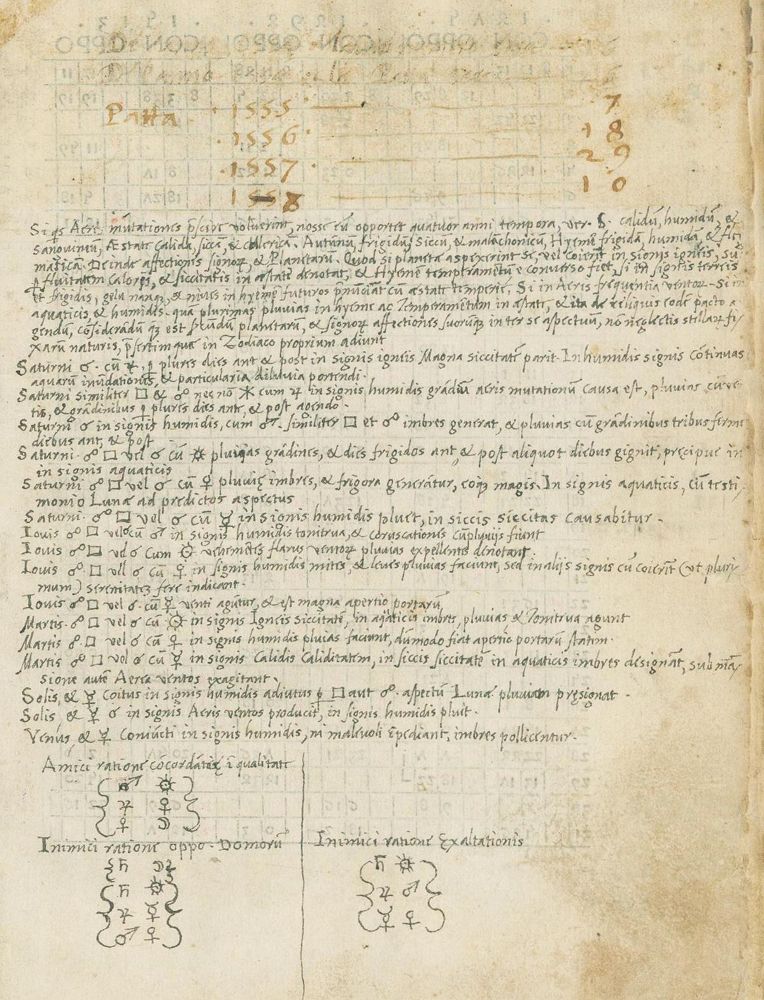 Patta · 1555 · 7
· 1556 · 1 8
· 1557 · 2 9
1558 1 0
Si qs Aeris mutationes pscipe voluerint, nosse eũ oportet quatuor anni tempora, ver. S. calidũ, humidũ, &
sanguineũ, Æstatẽ calidã, siccã, & collericã. Autũnũ, frigidũ, siccũ, & malãchonicũ, Hyemẽ frigidã, humidã, &
maticã. Deinde affectiones signoꝝ, & Planetarũ. Quod si planetæ aspexerint se, vel coierint in signis igneis, sup
fluitatem caloris, & siccitatis in æstate denotat, & Hyemẽ temperamẽtũ e converso fiet, si in signis terreis
et frigidis, gela nanq, & nives in hyemẽ futuros pnũciant cũ æstatẽ temperiẽ. Si in Aeris frequentia ventoꝝ. Si in
aquaticis, & humidis. qua plurimas pluvias in hyeme ac Temperamẽtum in æstati, & ita de reliquis eodẽ pacto a
gendũ, cõsiderãdũ qz est secũdũ planetarũ, & signoꝝ affectiones suorũqz inter se aspectuum, nõ neglectis stellarꝝ fi
xarũ naturis, psertim quæ in Zodiaco proprium adiunt
Saturni ☌ · cũ ♃ p plures dies ant & post in signis igneis Magna siccitatẽ parit. In humidis signis cõtinuas
aquarũ inũdationes, & particularia diluvia portendi.
Saturni similiter □ & ☍ nec nõ ⚹ cum ♃ in signis humidis grãdium aeris mutationum causa est, pluvias cũ vẽ
tis, & grãdinibus p plures dies ant, & post agendo.
Saturni ☌ in signis humidis, cum ♂ · similiter □ et ☍ imbres generat, & pluvias cũ grãdinibus tribus ferme
diebus ant, & post
Saturni · ☍ □ vel ☌ cũ ☼ pluvias grãdines, & dies frigidos ant, & post aliquot diebus gignit, pręcipue in
in signis aquaticis
Saturni ☍ □ vel ☌ cũ ♀ pluvię imbres, & frigora generãtur, eoqz magis. In signis aquaticis, cũ testi
monio Lunæ ad predictos aspectus
Saturni · ☍ □ vel ☌ cũ ☿ in signis humidis pluet, in siccis siccitas causabitur.
Iovis ☍ □ vel ☌ cũ ♂ in signis humidis tonitrua, & coruscationes cũ pluvijs fiunt
Iovis ☍ □ vel ☌ cum ☼ vehemẽtes flatus ventoꝝ pluvias expellentes denotant
Iovis ☍ □ vel ☌ cũ ♀ in signis humidis mites, & leves pluvias faciunt, sed in alijs signis cũ coierint (ut pluri
mum) serenitatẽ fere indicant.
Iovis ☍ □ vel ☌ cũ ☿ venti agũtur, & est magna apertio portarũ,
Martis · ☍ □ vel ☌ cũ ☼ in signis Igneis siccitatẽ, in aquaticis imbres, pluvias & Tonitrua agunt
Martis ☍ · □ vel ☌ cũ ♀ in signis humidis pluvias faciunt, dũmodo fiat apertio portarũ statim.
Martis ☍ · □ vel ☌ cũ ☿ in signis Calidis Caliditatem, in siccis siccitatẽ in aquaticis imbres designãt, sub mã
sione autẽ Aerea ventos exagitant.
Solis, & ☿ Coitus in signis humidis adiutus p □ aut ☍ · aspectũ Lunæ pluviam pręsignat.
Solis, & ☿ ☌ in signis Aeris ventos producit, in signis humidis pluit.
Venus & ☿ Coniũcti in signis humidis, ni malevoli ĩpediant, imbres pollicentur.
Amici ratione cõcordãtię ĩ qualitate
♂ ☼
♃ ♀
♀ ☽
Inimici ratione oppo. Domorũ
♄ ☽
♄ ☼
♃ ☿
♂ ♀
Inimici ratione Exaltationis
♄ ☼
♃ ♂
☿ ♀